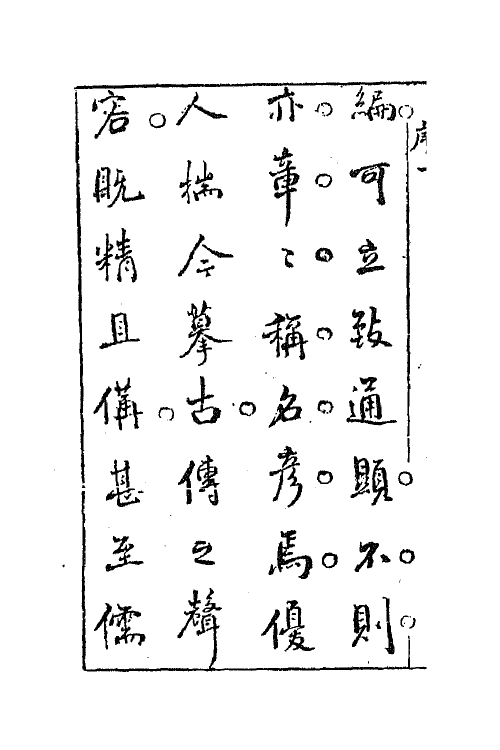 序一
編可立致通顯不則
亦章〻稱名彥焉優
人揣今摹古傳之聲
容旣精且備甚至儒